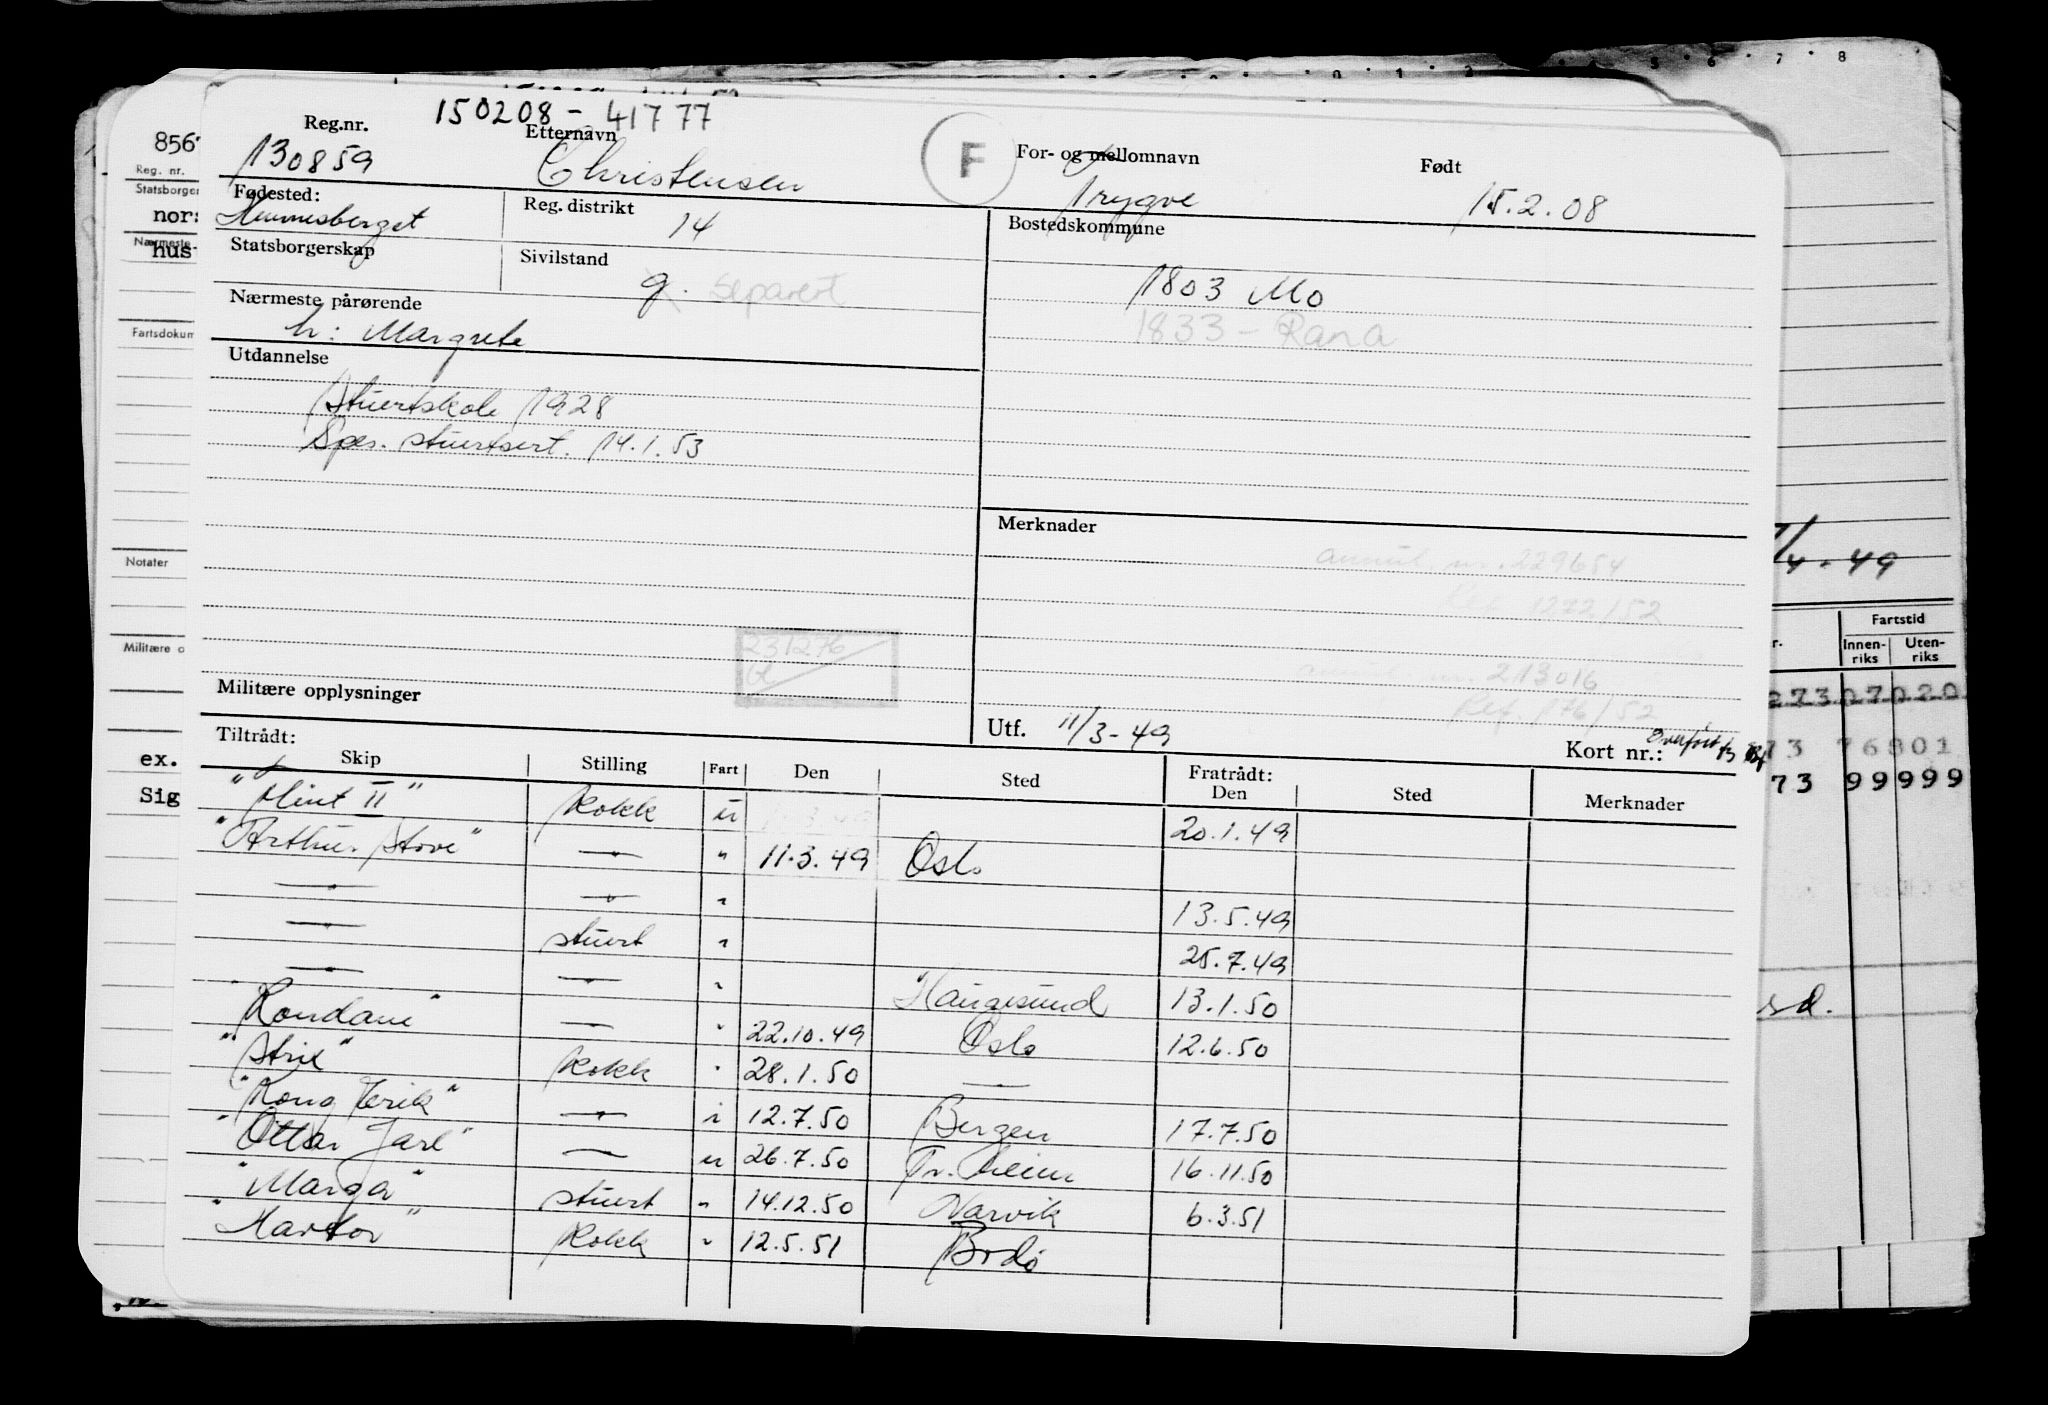 150208-41777
Reg.nr. Etternavn For- og mellomnavn Født
130859 Christensen F Trygve 15.2.08
Fødested: Reg. distrikt Bostedskommune
Hemnesberget 14
Statsborgerskap Sivilstand
g. separert 1803 Mo
Nærmeste pårørende 1833 - Rana
h: Margrete
Utdannelse
Stuertskole 1928
Spes. stuertsert. 14.1.53
Merknader
annul. nr. 229654
Ref. 1272/52
231276
annul. nr. 213016
Ref. 176/52
Militære opplysninger
Utf. 11/3-49
Kort nr.: Overført
Tiltrådt: Fratrådt:
Skip Stilling Fart Den Sted Den Sted Merknader
"Flint II" kokk u 11.3.49 20.1.49
"Arthur Stove" —"— " 11.3.49 Oslo
—"— —"— " 13.5.49
—"— stuert " 25.7.49
—"— —"— " Haugesund 13.1.50
"Rondane" —"— " 22.10.49 Oslo 12.6.50
"Strix" kokk " 28.1.50 —"—
"Kong Eirik" —"— i 12.7.50 Bergen 17.7.50
"Ottar Jarl" —"— u 26.7.50 Tr.heim 16.11.50
"Marga" stuert " 14.12.50 Narvik 6.3.51
"Martor" kokk " 12.5.51 Bodø
856
Reg. nr.
Statsborger
nors
Nærmeste
hus
Fartsdokum
Notater
Militære o
ex.
Sig
5 6 7 8
/4-49
Fartstid
Innen-riks Uten-riks
273 07020
73 76801
73 99999